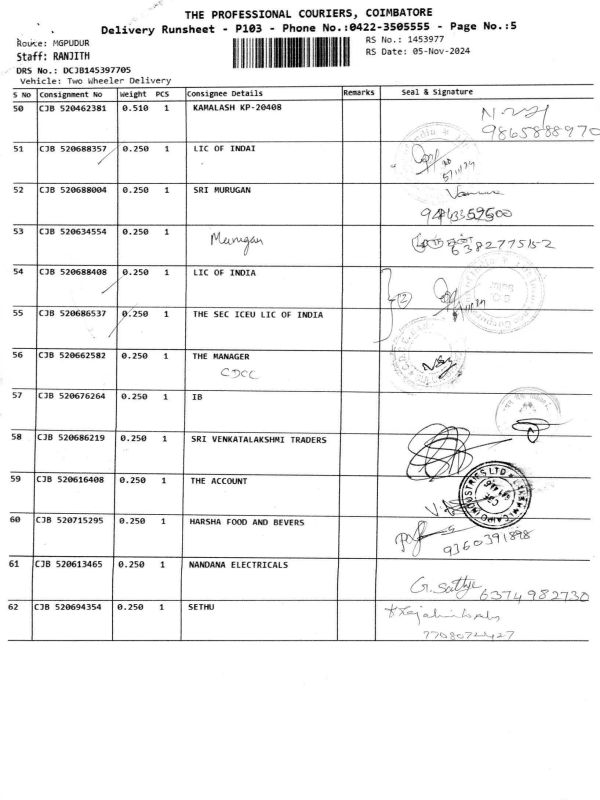 THE PROFESSIONAL COURIERS, COIMBATORE
Delivery Runsheet - P103 - Phone No.:0422-3505555 - Page No.:5
Route: MGPUDUR
RS No.: 1453977
Staff: RANJITH
RS Date: 05-Nov-2024
DRS No.: DCJB145397705
Vehicle: Two Wheeler Delivery
S No Consignment No Weight PCS Consignee Details Remarks Seal & Signature
50 CJB 520462381 0.510 1 KAMALASH KP-20408
9865888970
51 CJB 520688357 0.250 1 LIC OF INDAI
52 CJB 520688004 0.250 1 SRI MURUGAN
53 CJB 520634554 0.250 1
Murugan
54 CJB 520688408 0.250 1 LIC OF INDIA
55 CJB 520686537 0.250 1 THE SEC ICEU LIC OF INDIA
56 CJB 520662582 0.250 1 THE MANAGER
CDCC
57 CJB 520676264 0.250 1 IB
58 CJB 520686219 0.250 1 SRI VENKATALAKSHMI TRADERS
59 CJB 520616408 0.250 1 THE ACCOUNT
60 CJB 520715295 0.250 1 HARSHA FOOD AND BEVERS
9360391898
61 CJB 520613465 0.250 1 NANDANA ELECTRICALS
G. Sathya 6374982730
62 CJB 520694354 0.250 1 SETHU